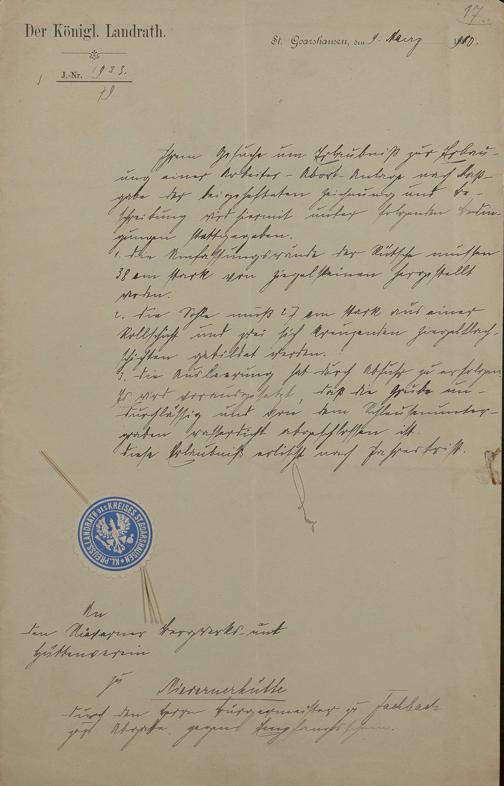 17.
Der Königl. Landrath.
St. Goarshausen, den 9. März 1900.
J.-Nr. 1933.
Ihrem Gesuche um Erlaubniß zur Erbau-
ung einer Arbeiter-Abort-Anlage nach Maß-
gabe der beigehefteten Zeichnung und Be-
schreibung wird hiermit unter folgenden Bedin-
gungen stattgegeben.
1. die Umfassungswände der Grube müssen
38 cm stark von Ziegelsteinen hergestellt
werden.
2. die Sohle muß 27 cm stark aus einer
Rollschicht und zwei sich kreuzenden Ziegelflach-
schichten gebildet werden.
3. die Ausleerung hat durch Abfuhr zu erfolgen.
Es wird vorausgesetzt, daß die Grube un-
durchlässig und von dem Schleusenunter-
graben wasserdicht abgeschlossen ist.
diese Erlaubniß erlischt nach Jahresfrist.
KL. PREUSS. LANDRATH DES KREISES ST. GOARSHAUSEN
An
den Nieverner Bergwerks- und
Hüttenverein
zu Nievernerhütte
durch den Herrn Bürgermeister zu Fachbach
gegen Empfangsschein.